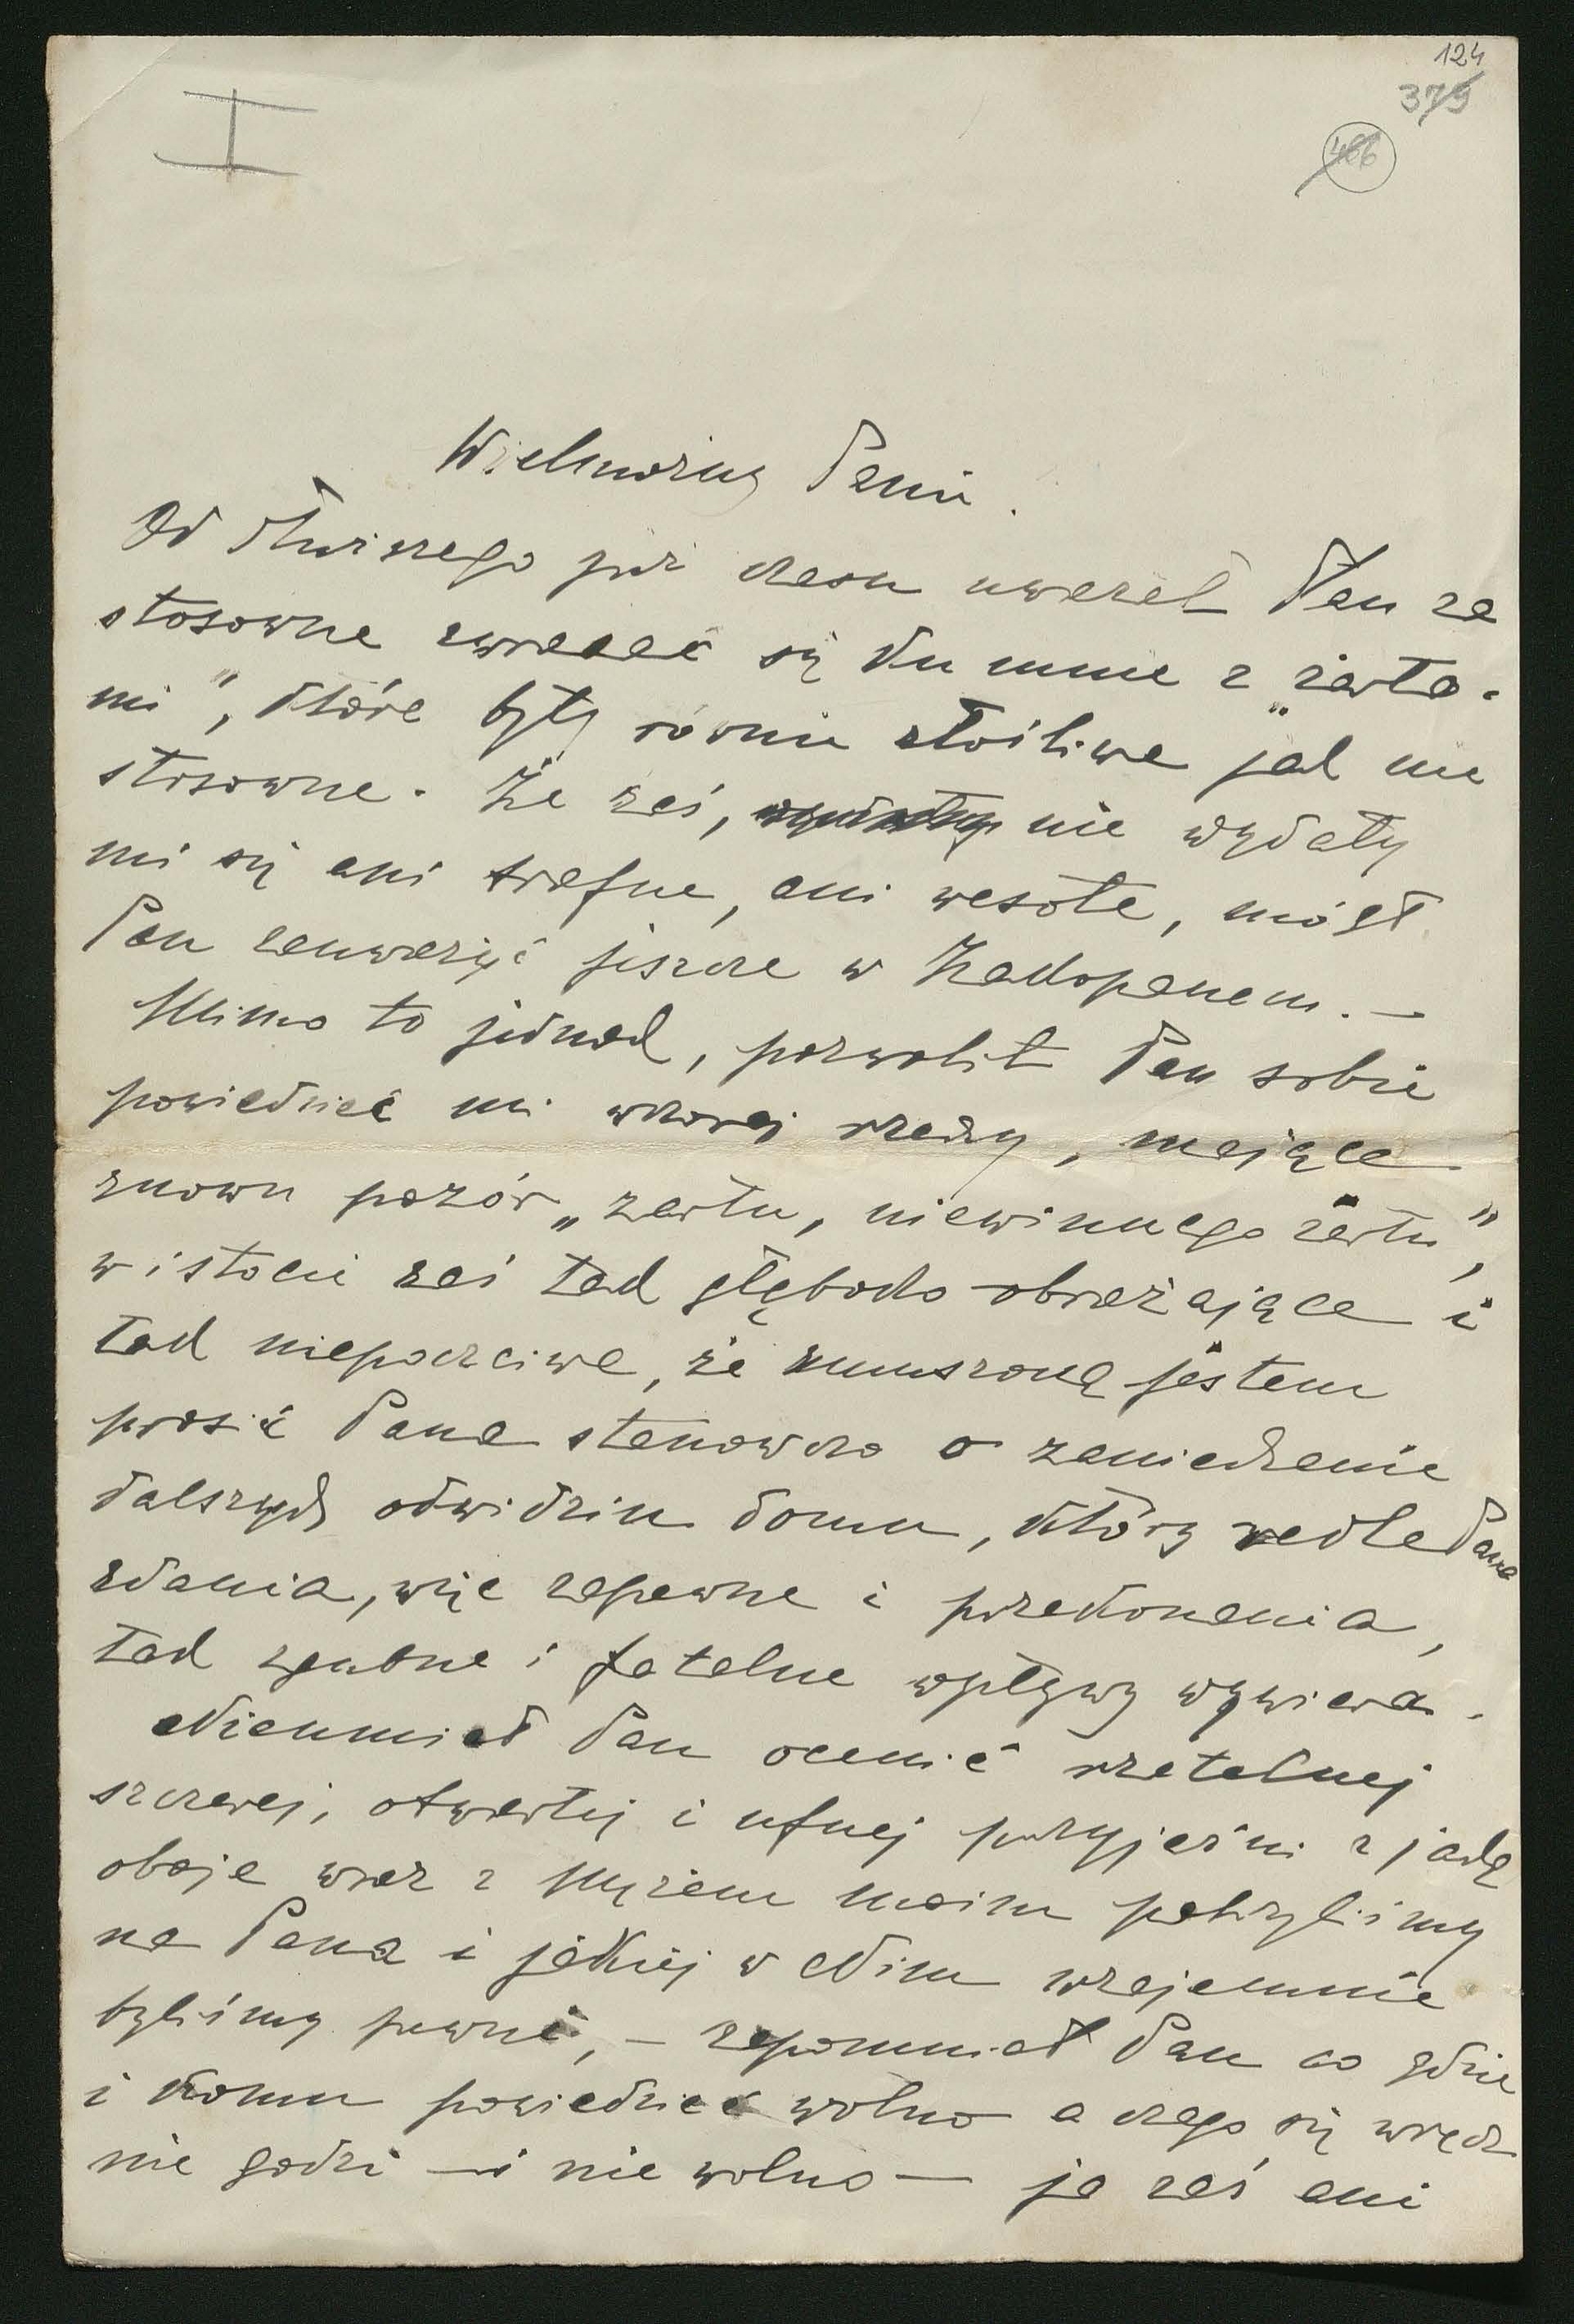 124
379
466
I
Wielmożny Panie.
Od dłuższego już czasu uważał Pan za
stosowne zwracać się do mnie z „żarta-
mi", które były równie złośliwe jak nie
stosowne. Że zaś, nie wydały
mi się ani trafne, ani wesołe, mógł
Pan zauważyć jeszcze w Zakopanem. —
Mimo to jednak, pozwolił Pan sobie
powiedzieć mi wczoraj rzeczy, mające
znowu pozór „żartu, niewinnego żartu",
w istocie zaś tak głęboko obrażające i
tak niepoczciwe, że zmuszoną jestem
prosić Pana stanowczo o zaniechanie
dalszych odwiedzin domu, który wedle Pana
zdania, więc zapewne i przekonania,
tak zgubne i fatalne wpływy wywiera.
Nieumiał Pan ocenić rzetelnej
szczerej, otwartej i ufnej przyjaźni z jaką
oboje wraz z Mężem moim patrzyliśmy
na Pana i jakiej w Nim wzajemnie
byliśmy pewni, — zapomniał Pan co gdzie
i komu powiedzieć wolno a czego się wręcz
nie godzi — i nie wolno — ja zaś ani